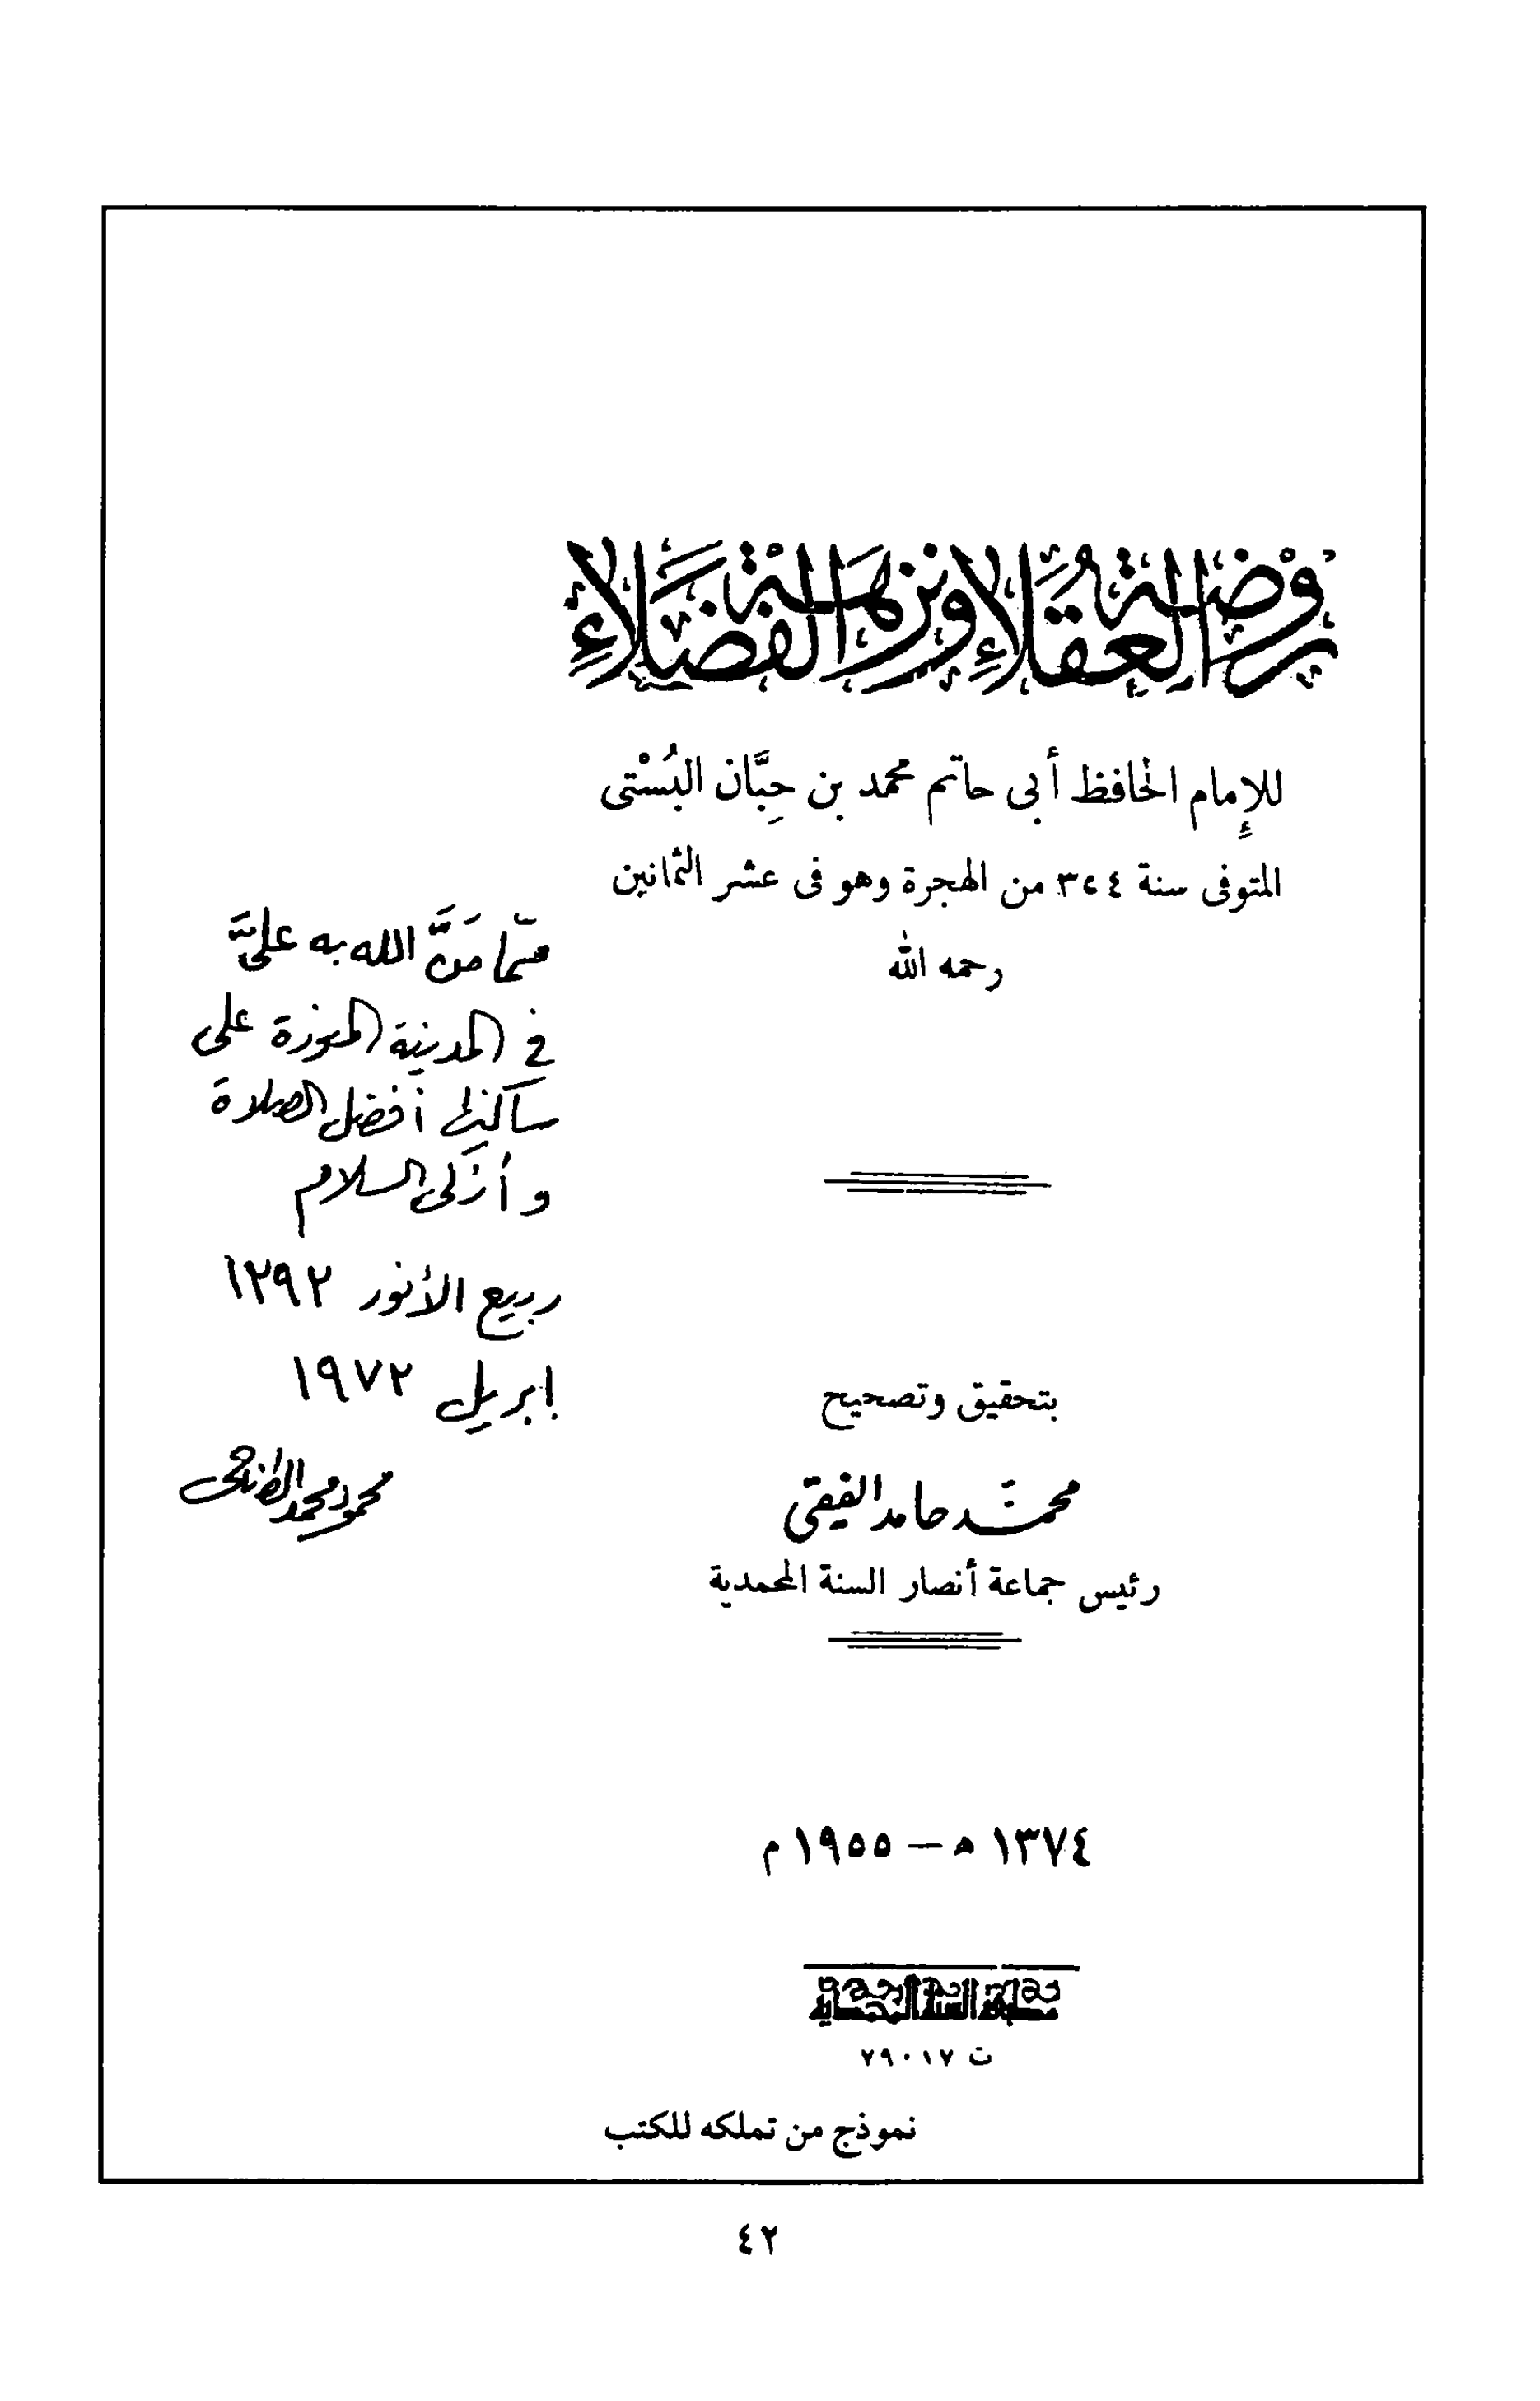 روضة العقلاء ونزهة الفضلاء
للإمام الحافظ أبي حاتم محمد بن حِبَّان البُسْتى
المتوفى سنة ٣٥٤ من الهجرة وهو فى عشر الثمانين
رحمه الله
ممّا مَنَّ الله به علىَّ
في المدينة المنورة على
ساكنها أفضل الصلاة
وأزكى السلام
ربيع الأنور ١٣٩٢
ابريل ١٩٧٢
محمود محمد الطناحى
بتحقيق وتصحيح
محمد حامد الفقي
رئيس جماعة أنصار السنة المحمدية
١٣٧٤ ه — ١٩٥٥ م
مطبعة السنة المحمدية
ت ٧٩٠١٧
نموذج من تملكه للكتب
٤٢